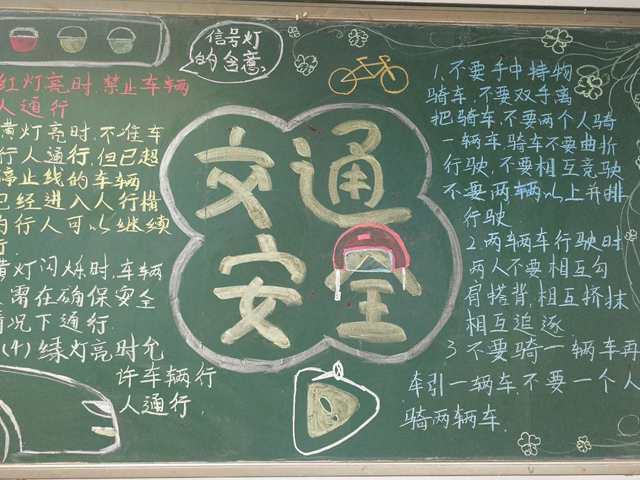 信号灯
的含意
红灯亮时,禁止车辆
人通行
黄灯亮时,不准车
行人通行,但已超
停止线的车辆
已经进入人行横
的行人可以继续
行.
黄灯闪烁时,车辆
需在确保安全
情况下通行.
(4)绿灯亮时允
许车辆行
人通行
交通
安全
1、不要手中持物
骑车,不要双手离
把骑车,不要两个人骑
一辆车,骑车不要曲折
行驶,不要相互竞驶
不要两车辆以上并排
行驶
2.两车辆车行驶时
两人不要相互勾
肩搭背,相互挤抹
相互追逐
3 不要骑一辆车再
牵引一辆车,不要一个人
骑两辆车.